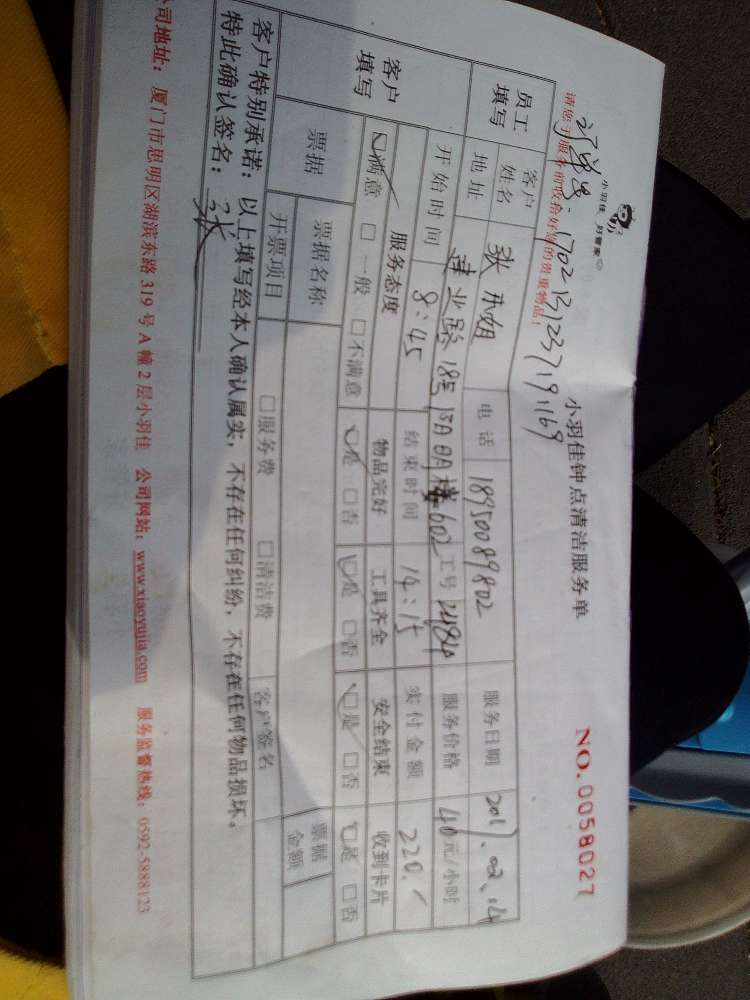 小羽佳 好管家
小羽佳钟点清洁服务单
NO.0058027
请您于服务前收拾好您的贵重物品!
订单号:170213123719169
员工填写 客户姓名 张 电话 18950089802 服务日期 2017.02.14
地址 建业路18号阳明楼602 工号 服务价格 40元/小时
开始时间 8:45 结束时间 14:15 实付金额 220.
客户填写 服务态度 物品完好 工具齐全 安全结束 收到卡片
☑满意 □一般 □不满意 ☑是 □否 ☑是 □否 ☑是 □否 ☑是 □否
票据 票据名称 票据金额
开票项目 □服务费 □清洁费 客户签名
客户特别承诺:以上填写经本人确认属实,不存在任何纠纷,不存在任何物品损坏。
特此确认签名:张
公司地址:厦门市思明区湖滨东路319号A幢2层小羽佳 公司网站:www.xiaoyujia.com 服务监督热线:0592-5888123